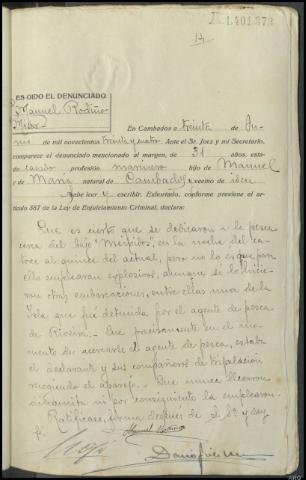 1.401.373
14
ES OIDO EL DENUNCIADO
Manuel Rodiño
En Cambados a treinta de Ju-
nio de mil novecientos treinta y cuatro Ante el Sr. Juez y mi Secretario,
comparece el denunciado mencionado al margen, de 31 años, esta-
do casado profesión marinero hijo de Manuel
y de María natural de Cambados, vecino de idem
sabe leer y escribir. Exhortado, conforme previene el ar-
tículo 387 de la Ley de Enjuiciamiento Criminal, declara:
Que es cierto que se dedicaron a la pesca
cerca del bajo en la noche del ca-
torce al quince del actual, pero no lo es que para
ello emplearan explosivos, aunque si lo hicie-
ron otras embarcaciones, entre ellas una de la
Isla que fué detenida por el agente de pesca
de Que precisamente en el mo-
mento de acercarse el agente de pesca, estaba
el declarante y sus compañeros de tripulación
recogiendo el aparejo. Que nunca llevaron
dinamita ni por consiguiente la emplearon.
Ratificase, firma después de S. Sª y doy
fé.
Manuel Rodiño